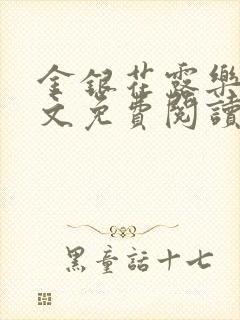 金銀花露樂
文免費閱讀
黑童話十七